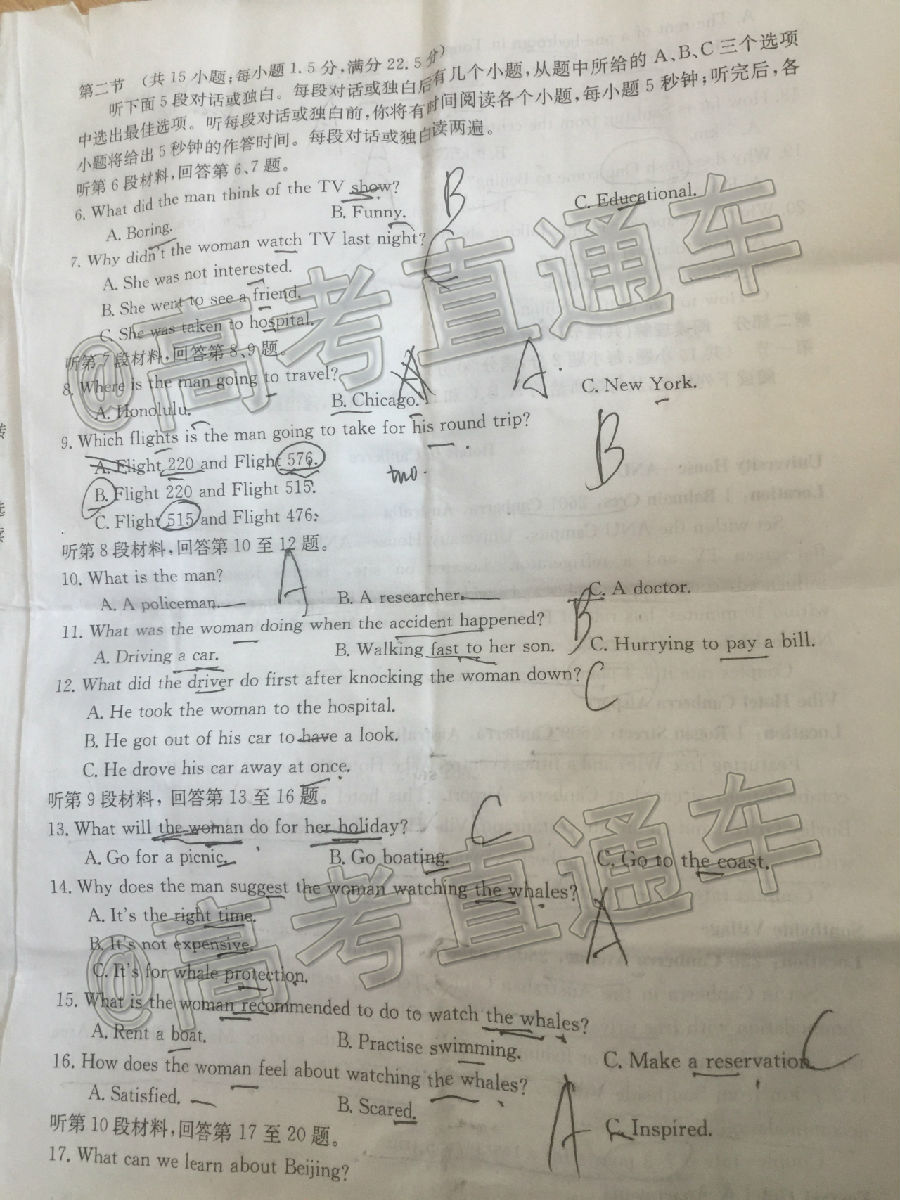 第二节 (共15小题;每小题1.5分,满分22.5分)
听下面5段对话或独白。每段对话或独白后有几个小题,从题中所给的A、B、C三个选项
中选出最佳选项。听每段对话或独白前,你将有时间阅读各个小题,每小题5秒钟;听完后,各
小题将给出5秒钟的作答时间。每段对话或独白读两遍。
听第6段材料,回答第6、7题。
6. What did the man think of the TV show? B
A. Boring. B. Funny. C. Educational.
7. Why didn't the woman watch TV last night? C
A. She was not interested.
B. She went to see a friend.
C. She was taken to hospital.
听第7段材料,回答第8、9题。
8. Where is the man going to travel? A A.
A. Honolulu. B. Chicago. C. New York.
9. Which flights is the man going to take for his round trip? B
A. Flight 220 and Flight 576. two.
B. Flight 220 and Flight 515.
C. Flight 515 and Flight 476.
听第8段材料,回答第10至12题。
10. What is the man? A
A. A policeman. B. A researcher. C. A doctor.
11. What was the woman doing when the accident happened? B
A. Driving a car. B. Walking fast to her son. C. Hurrying to pay a bill.
12. What did the driver do first after knocking the woman down? C
A. He took the woman to the hospital.
B. He got out of his car to have a look.
C. He drove his car away at once.
听第9段材料,回答第13至16题。
13. What will the woman do for her holiday? C
A. Go for a picnic. B. Go boating. C. Go to the coast.
14. Why does the man suggest the woman watching the whales? A
A. It's the right time.
B. It's not expensive.
C. It's for whale protection.
15. What is the woman recommended to do to watch the whales?
A. Rent a boat. B. Practise swimming. C. Make a reservation. C
16. How does the woman feel about watching the whales? A
A. Satisfied. B. Scared. C. Inspired.
听第10段材料,回答第17至20题。
17. What can we learn about Beijing?
@高考直通车
@高考直通车